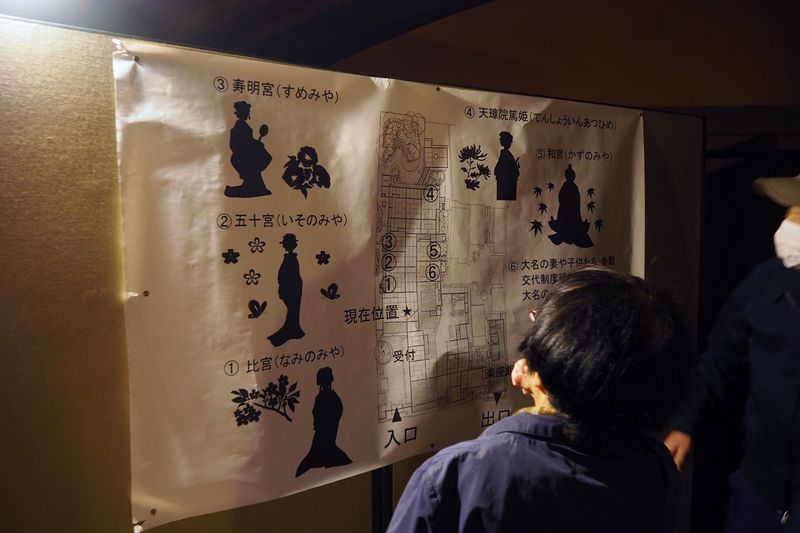 ③ 寿明宮(すめみや)
② 五十宮(いそのみや)
① 比宮(なみのみや)
④ 天璋院篤姫(てんしょういんあつひめ)
⑤ 和宮(かずのみや)
⑥ 大名の妻や子供たち・参勤
交代制度
大名の
④
③
②
①
⑤
⑥
現在位置★
受付
入口
出口